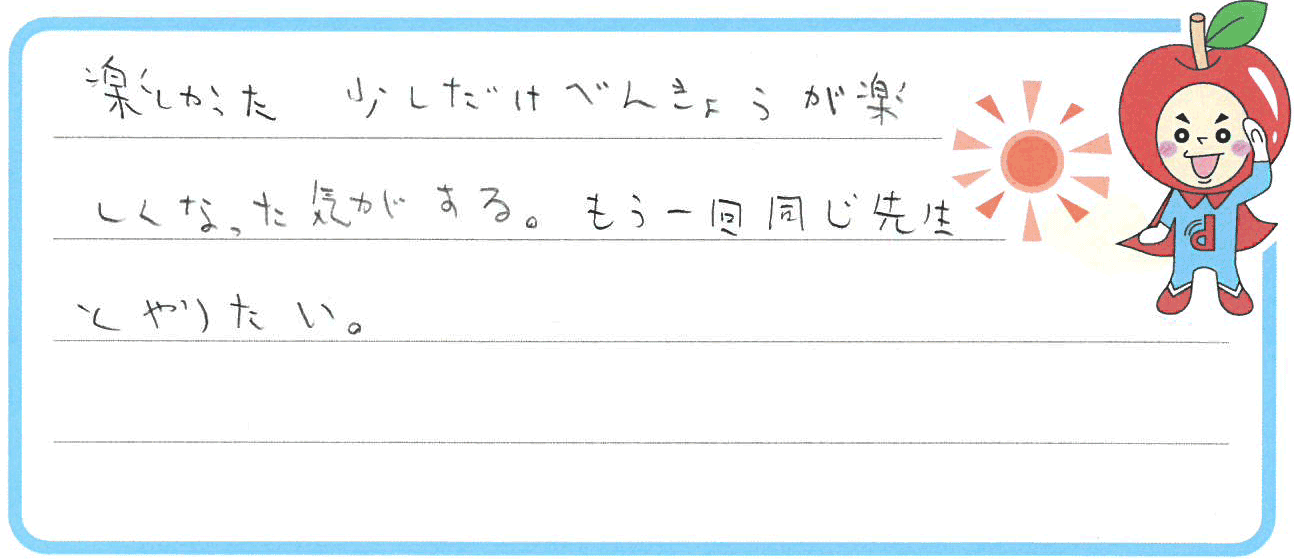 楽しかった 少しだけべんきょうが楽
しくなった気がする。もう一回同じ先生
とやりたい。